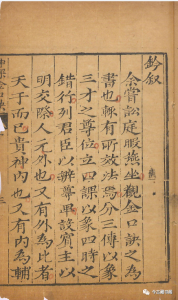 鈐叙
余嘗訟庭暇燕坐觀金口訣之為
書也輒有所效法焉分三傳以象
三才之尊位立四課以象四時之
錯行列君臣以辨尊卑設賓主以
明交際人元外也又有外為比者
天干而已貴神內也又有內為輔